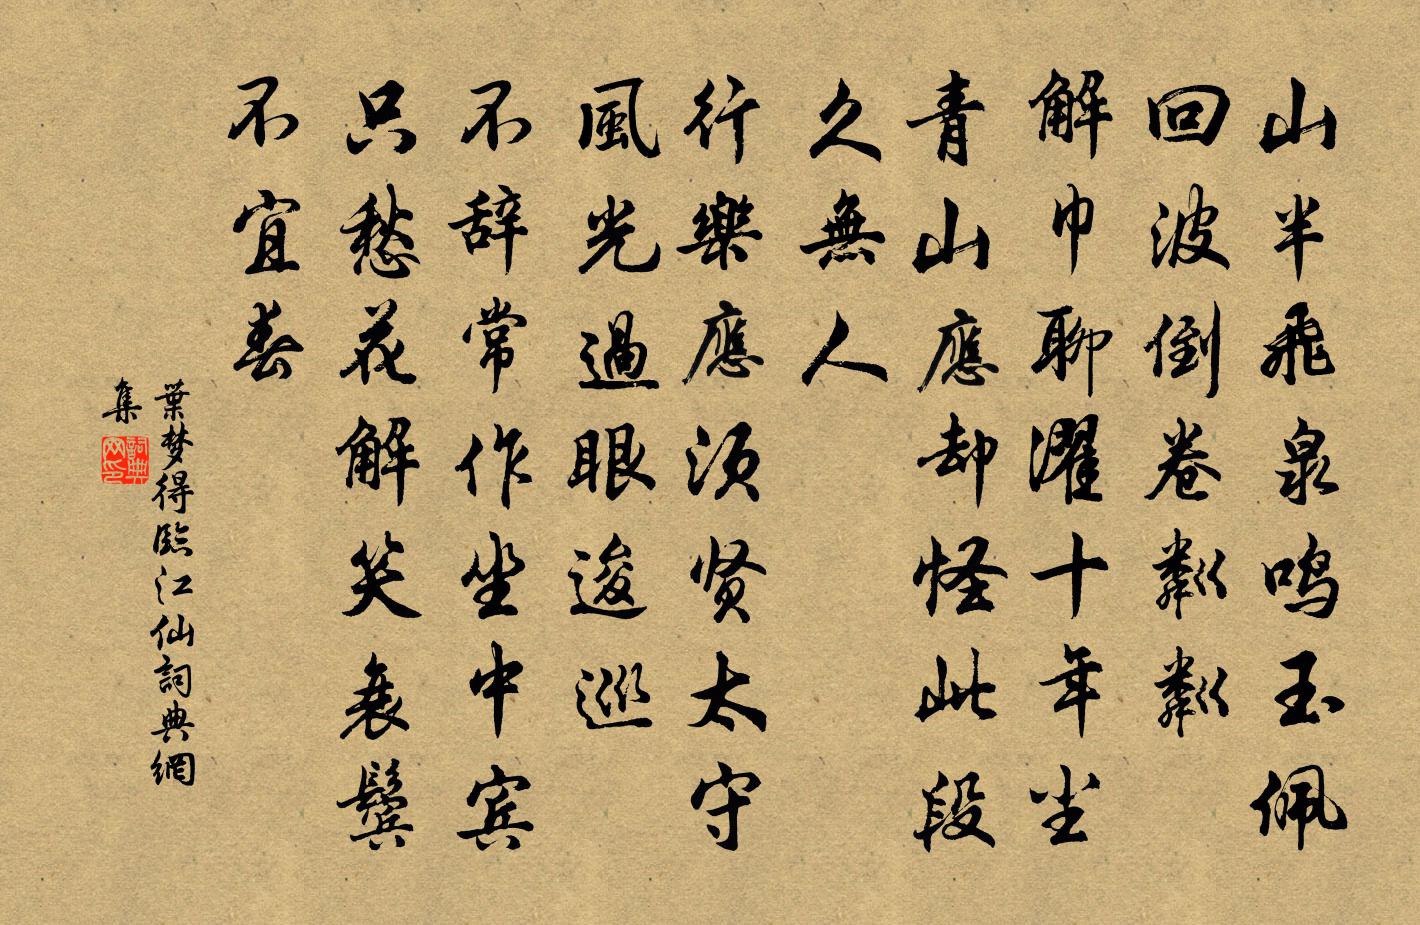 山半飛泉鸣玉佩
回波倒卷粼粼
解巾聊濯十年尘
青山應却怪此段
久無人
行樂應须贤太守
風光過眼逡巡
不辞常作坐中宾
只愁花解笑衰鬓
不宜春
葉梦得臨江仙詞典網
集